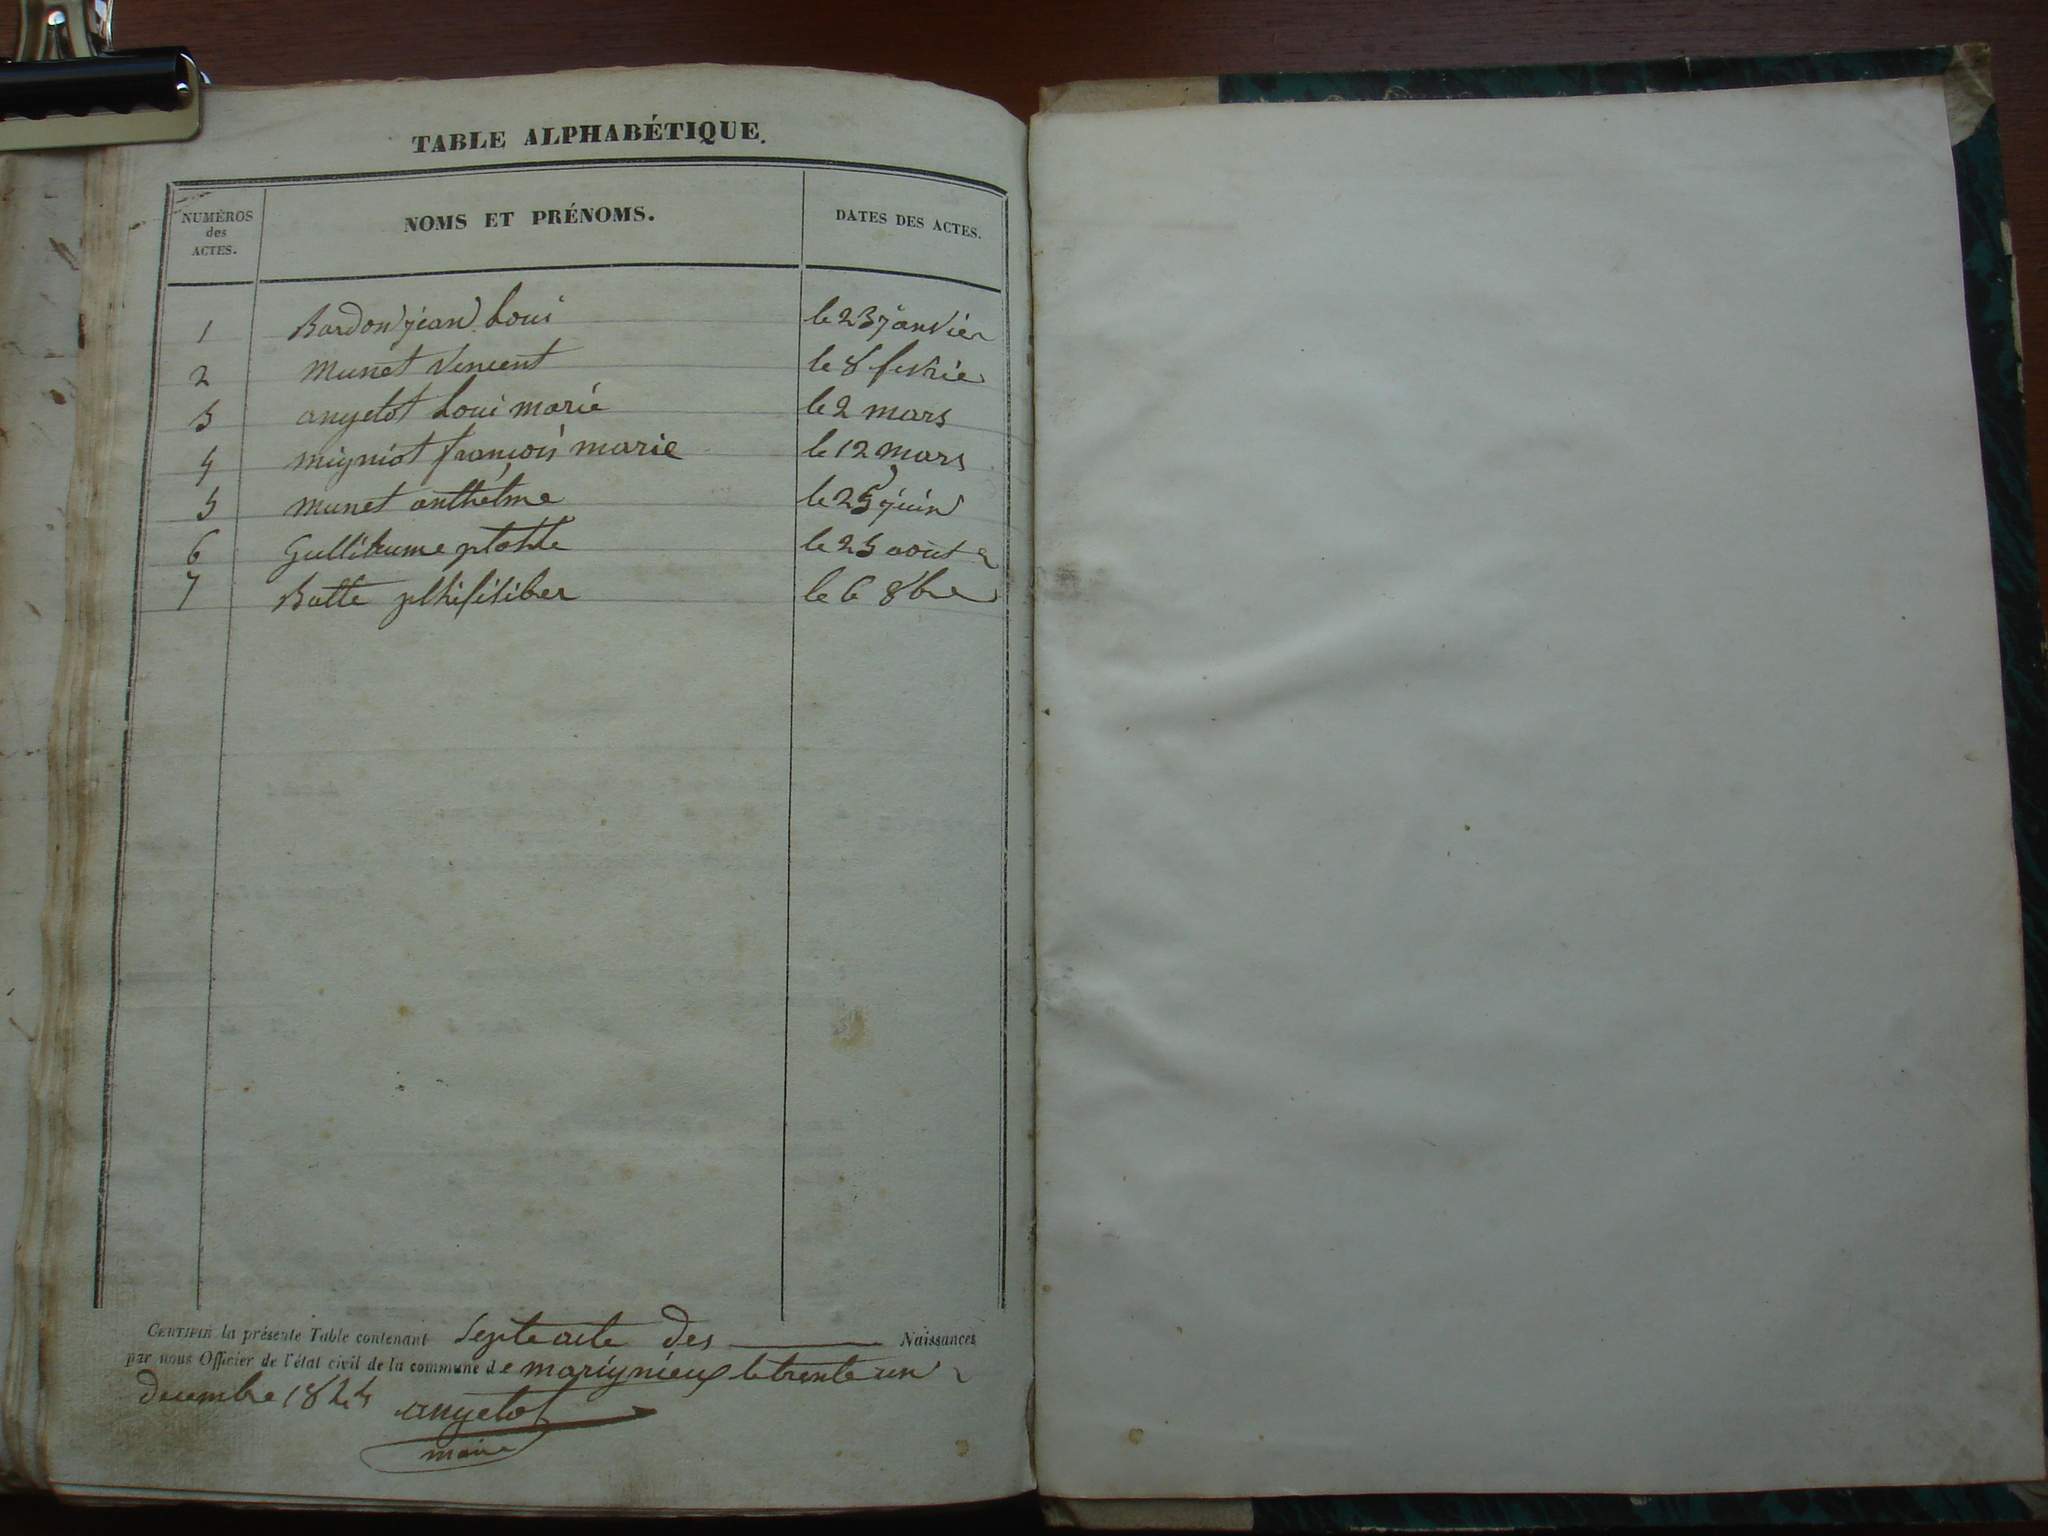 TABLE ALPHABÉTIQUE.
NUMÉROS des ACTES. NOMS ET PRÉNOMS. DATES DES ACTES.
1 Bardon jean Loui le 23 janvier
2 munet vincent le 8 fevrie
3 angelot Loui marie le 2 mars
4 migniot françois marie le 12 mars
5 munet anthelme le 25 juin
6 Gullieume le 25 aout
7 Batte le 6 8bre
CERTIFIÉ la présente Table contenant Septe acte des Naissances
par nous Officier de l'état civil de la commune de marignieux le trente un
decembre angelot
maire